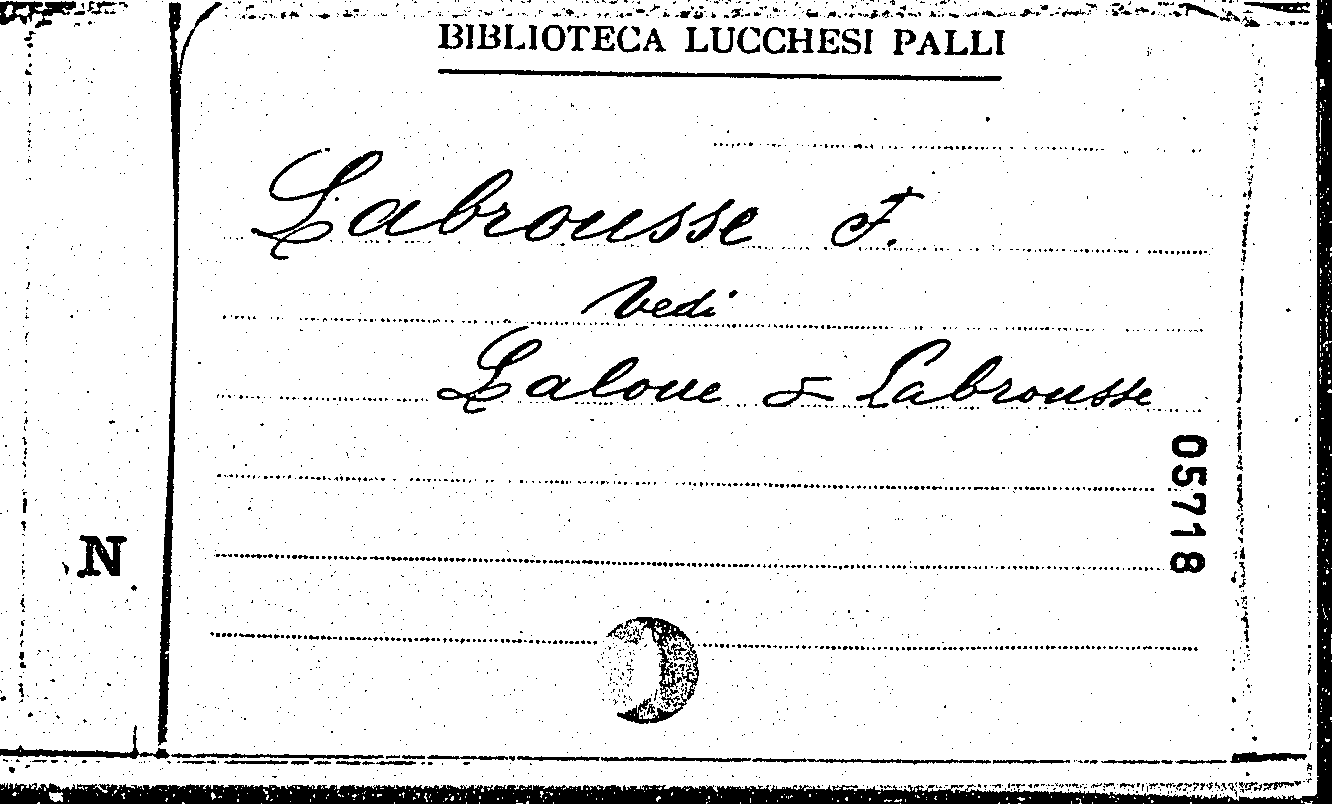 BIBLIOTECA LUCCHESI PALLI
Labrousse F.
Vedi
Laloue & Labrousse
05718
N